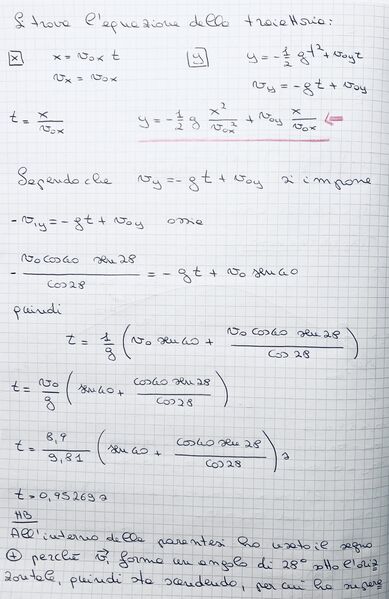 Si trova l'equazione della traiettoria:
x x = v₀ₓ t y y = -1/2 g t² + v₀y t
vₓ = v₀ₓ vy = -gt + v₀y
t = x/v₀ₓ y = -1/2 g x²/v₀ₓ² + v₀y x/v₀ₓ ⇐
Sapendo che vy = -gt + v₀y si impone
-v₁y = -gt + v₀y ossia
- v₀ cos40 sen28 / cos28 = -gt + v₀ sen40
quindi
t = 1/g (v₀ sen40 + v₀ cos40 sen28 / cos28)
t = v₀/g (sen40 + cos40 sen28 / cos28)
t = 8,9/9,81 (sen40 + cos40 sen28 / cos28) s
t = 0,95269 s
NB
All'interno della parentesi ho usato il segno
⊕ perché v⃗₁ forma un angolo di 28° sotto l'oriz
zontale, quindi sta scendendo, per cui ha supera